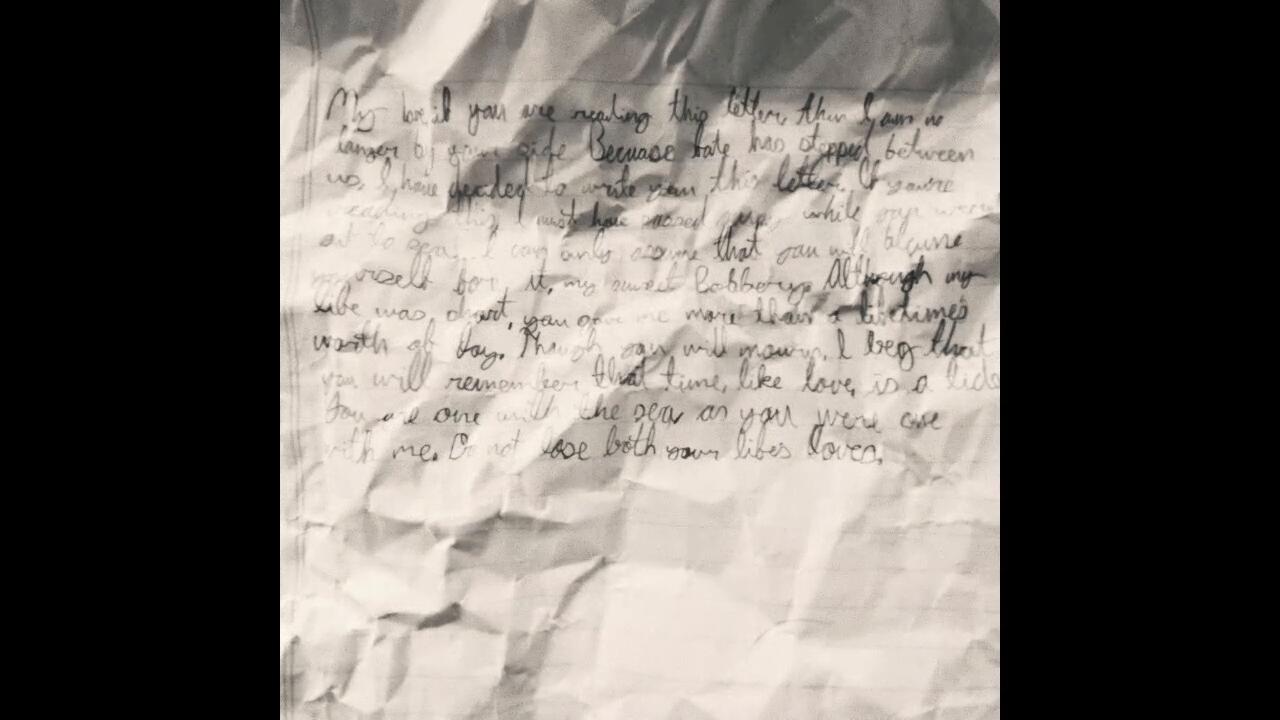 My love, if you are reading this letter then I am no
longer by your side. Becuase fate has stepped between
us, I have decided to write you this letter. If you're
reading this I must have passed away while you were
out to sea. I can only assume that you will blame
yourself for it, my sweet Although my
life was short, you gave me more than a lifetimes
worth of Though you will mourn, I beg that
you will remember that time, like love, is a tide
You are one with the sea as you were one
with me. Do not lose both your lifes loves.